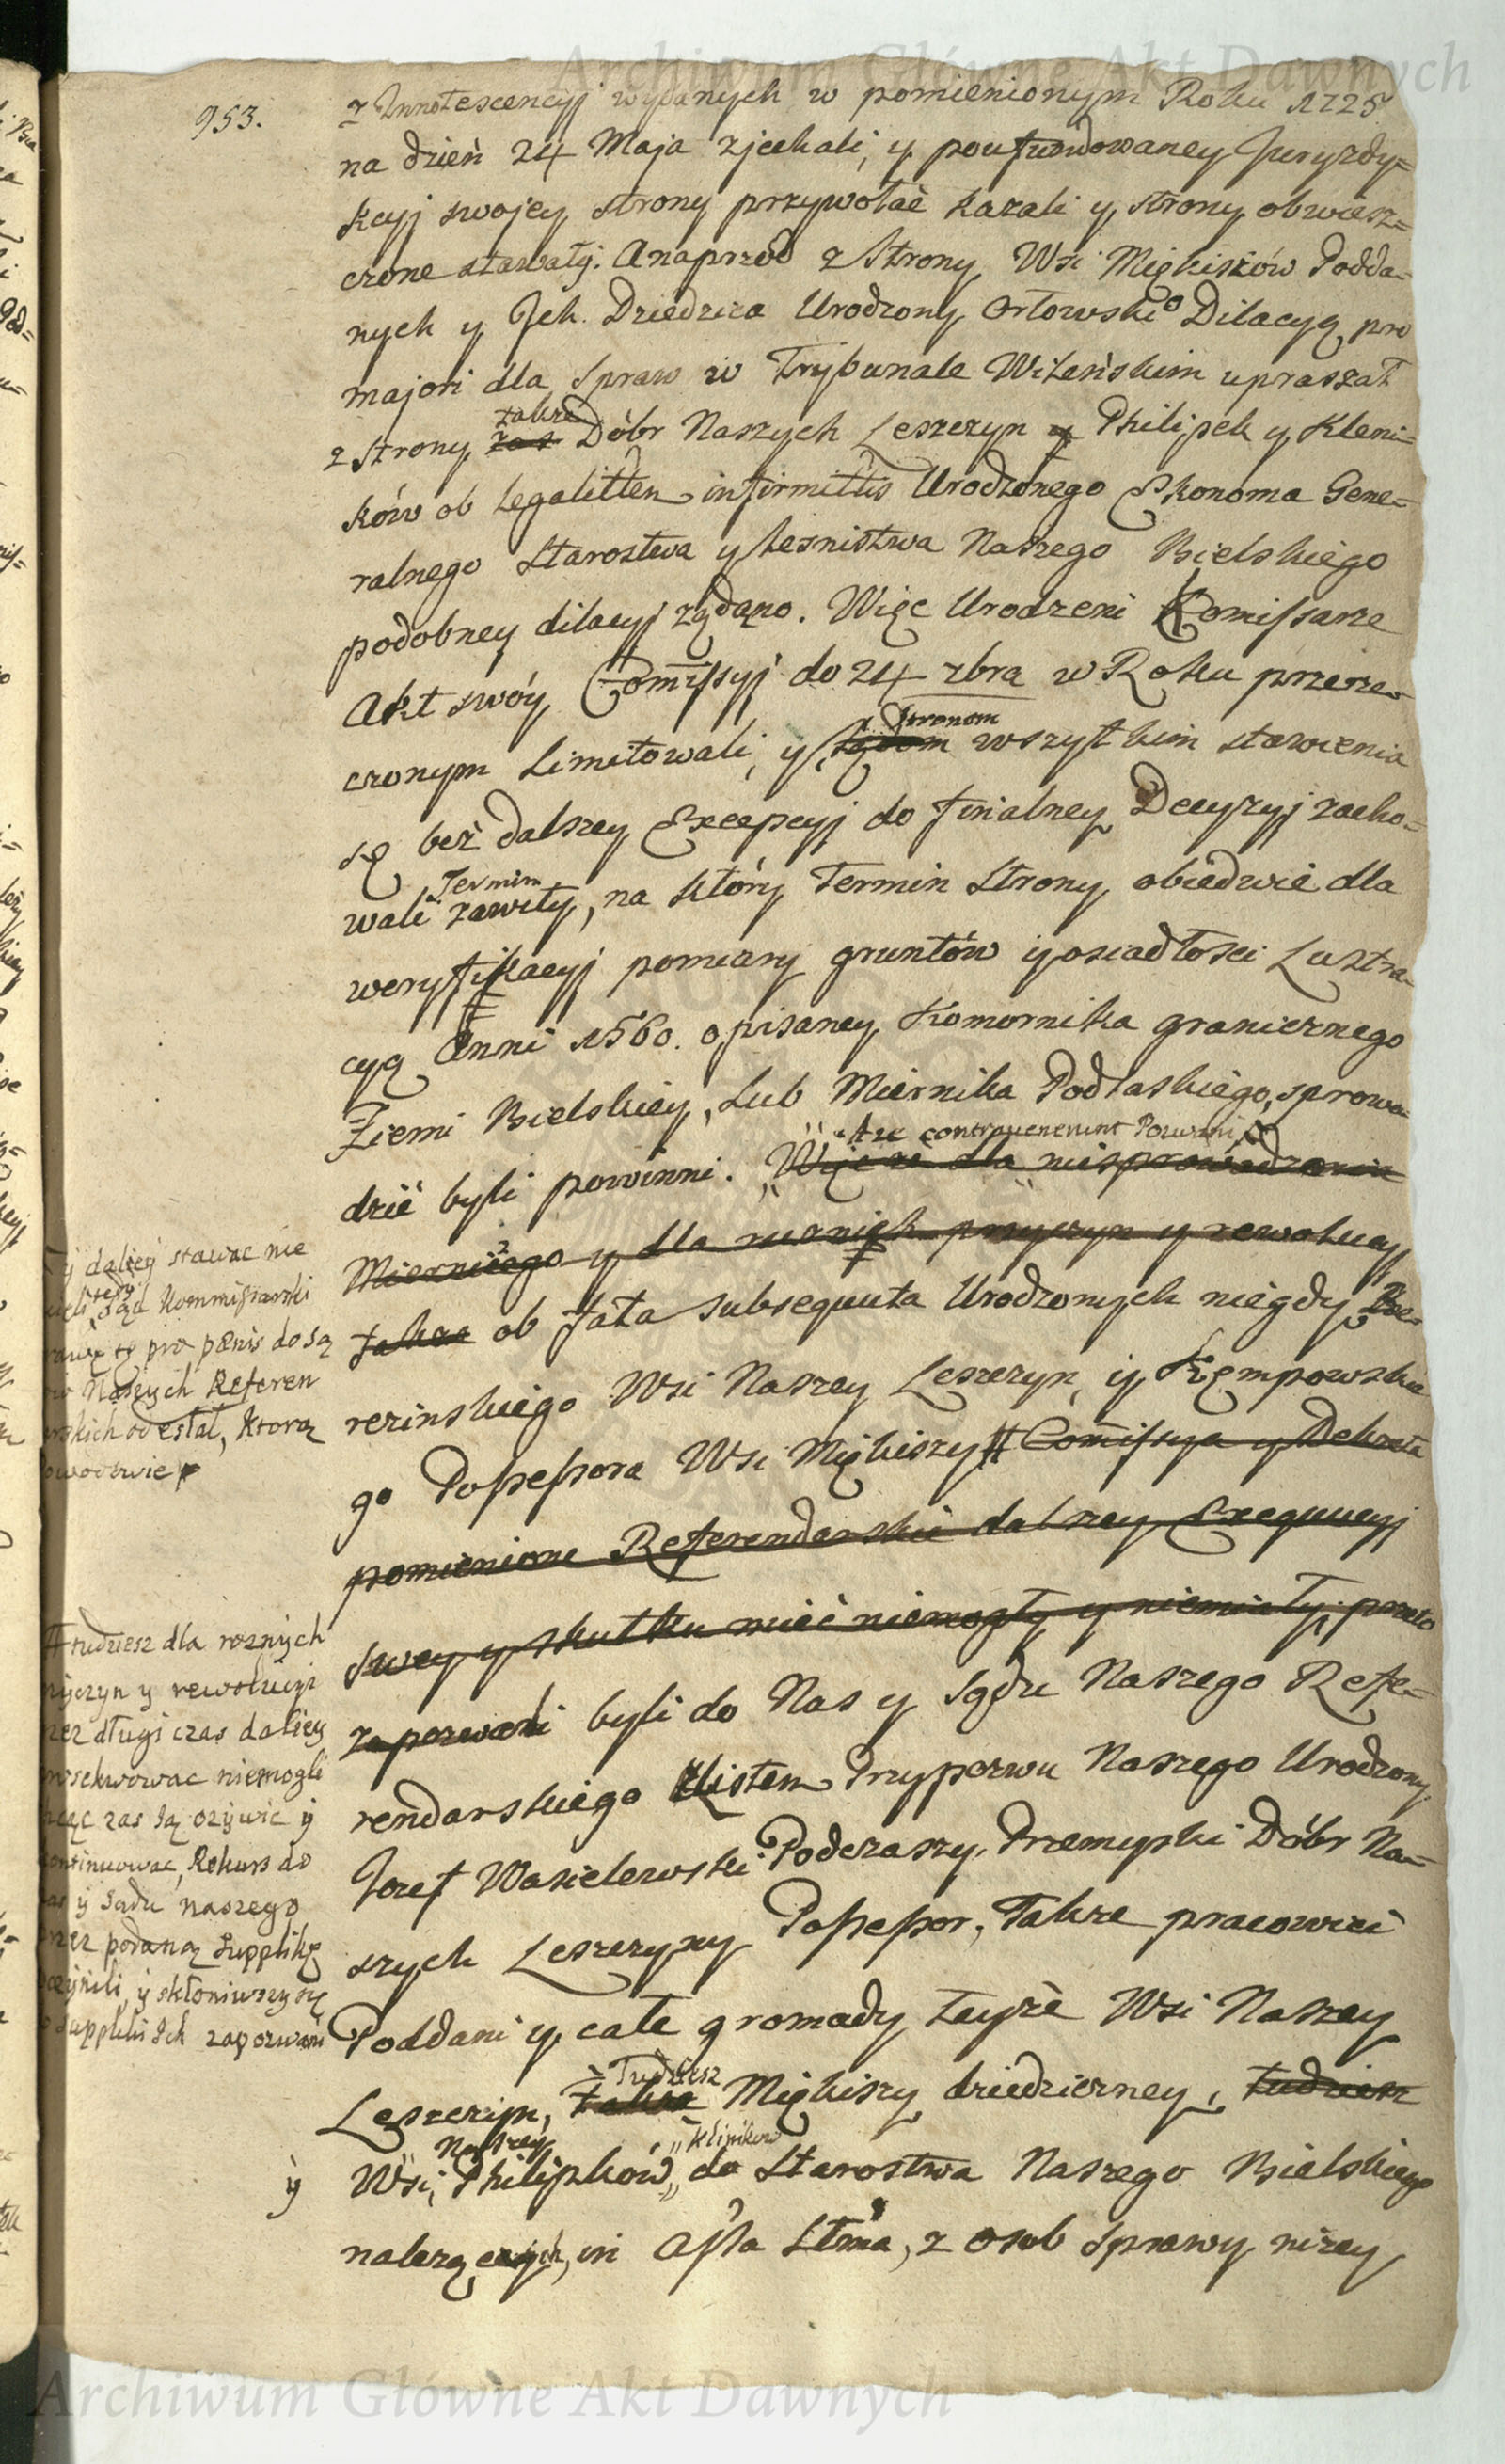 Archiwum Główne Akt Dawnych
953.
z Innotescencyj wydanych w pomienionym Roku 1725
na dzień 24 Maja zjechali, y poufundowaney Juryzdy=
kcyj swojey strony przywołać kazali y strony obwiesz=
czone stawały. A naprzód z Strony Wsi Miękiszów Podda=
nych y Jch Dziedzica Urodzony Orłowski Dilacyą pro
majori dla Spraw w Trybunale Wileńskim upraszał
także
z strony zas Dóbr Naszych Leszczyn y Philipek y Kleni=
ków ob legalitten infirmittis Urodzonego Ekonoma Gene=
ralnego Starostwa y Lesnistwa Naszego Bielskiego
podobney dilacyj żądano. Więc Urodzeni Komissarze
Akt swóy Comissyj do 24 zbra w Roku przerze=
Stronom
czonym Limitowali, y wszystkim stawienia
sę beż dalszey Excepcyj do finalney Decyzyj zacho=
Termin
wali zawity, na który Termin Strony obiedwie dla
weryfikacyj pomiary gruntów y osiadłosci Lustra=
cyą Anni 1560. opisaney Komornika granicznego
Ziemi Bielskiey, Lub Miernika Podlaskiego, sprowa=
A ze contravenerunt Pozwani
dzić byli powinni. Więc że dla niesprowadzenia
Mierniczego y dla roznych przyczyn y rewolucyj
także ob fata subsequuta Urodzonych niegdy Be=
rezinskiego Wsi Naszey Leszczyn, y Kępowskie
go Possessora Wsi Miękiszy # Comissya y Dekreta
pomienione Referendarskie dalszey Exequucyj
swey y skutku mieć niemogły y niemiały; przeto
zapozwali byli do Nas y Sądu Naszego Refe=
rendarskiego Listem Przypozwu Naszego Urodzony
Jozef Wasilewski Podczaszy Przemyski Dóbr Na=
szych Leszczyny Possessor, Także pracowici
Poddani y całe gromady teyże Wsi Naszey
Tudziesz
Leszczyn, także Miękiszy dziedziczney, tudziesz
Naszey Klinikow
y Wsi, Philipków, do Starostwa Naszego Bielskiego
należących, in Assa Sttma, z osob sprawy niżey
y daliey stawac nie
tedy
Sąd Kommissarski
pro pænis do Są
Naszych Referen
odesłał, ktorą
# tudziesz dla roznych
y rewolucyi
długi czas daliey
niemogli
zas Ją ozywic y
continuowac, Rekurs do
y Sądu naszego
podaną Supplikę
y skłoniwszy się
Suppliki Jch zapozwani
Archiwum Główne Akt Dawnych